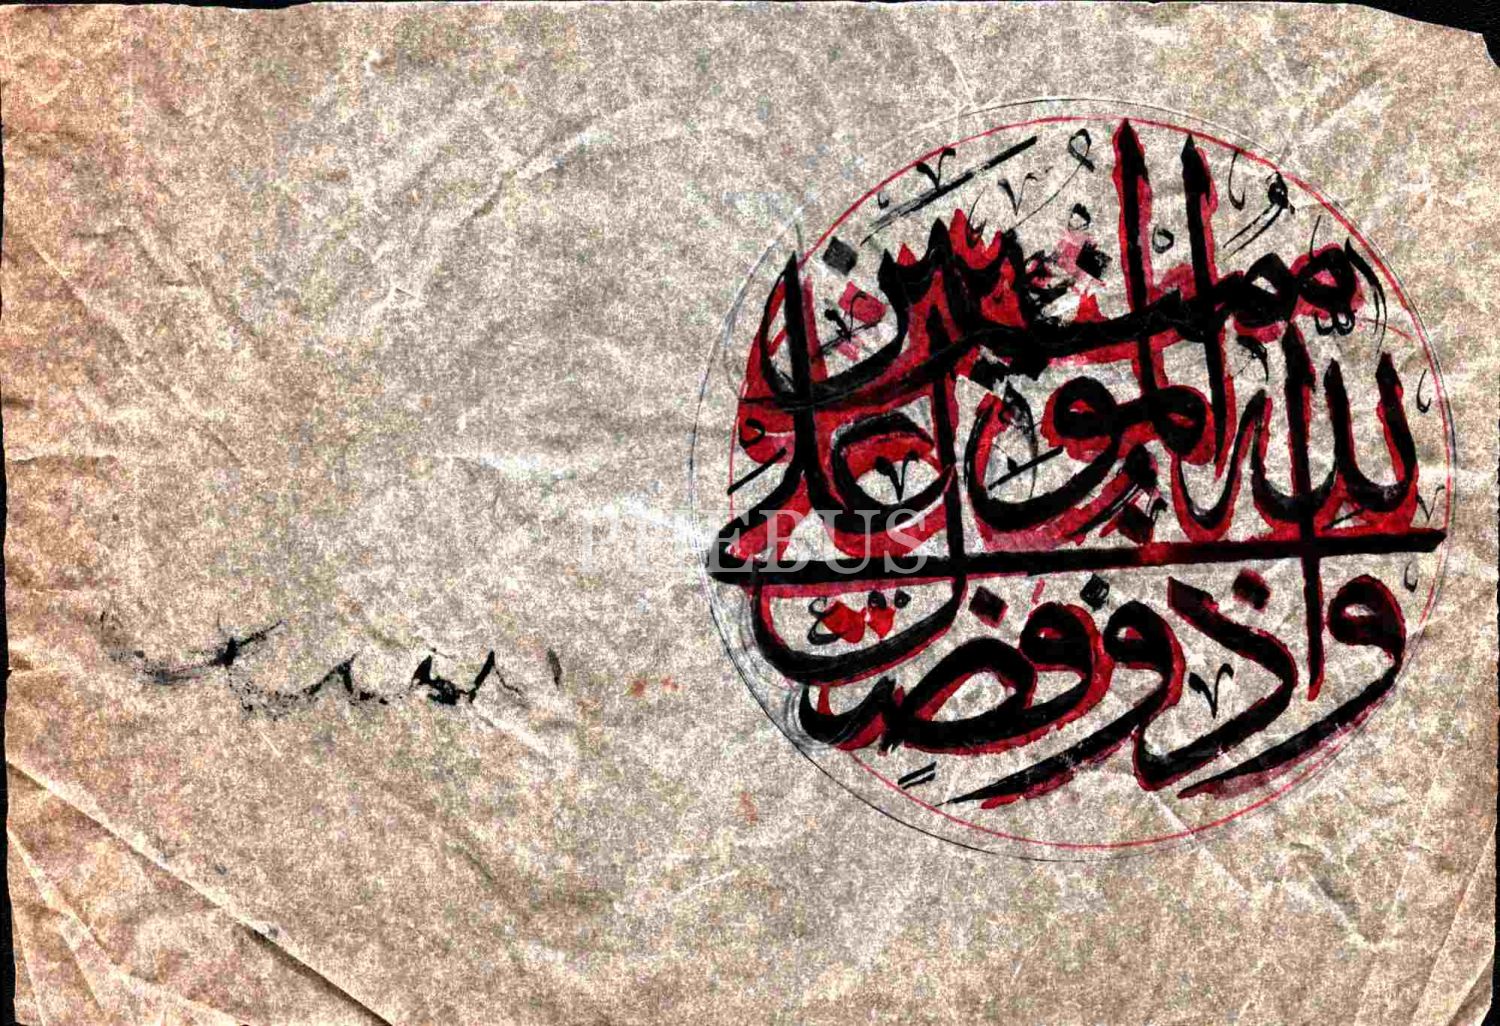 والله ذو فضل على المؤمنين
PHEBUS